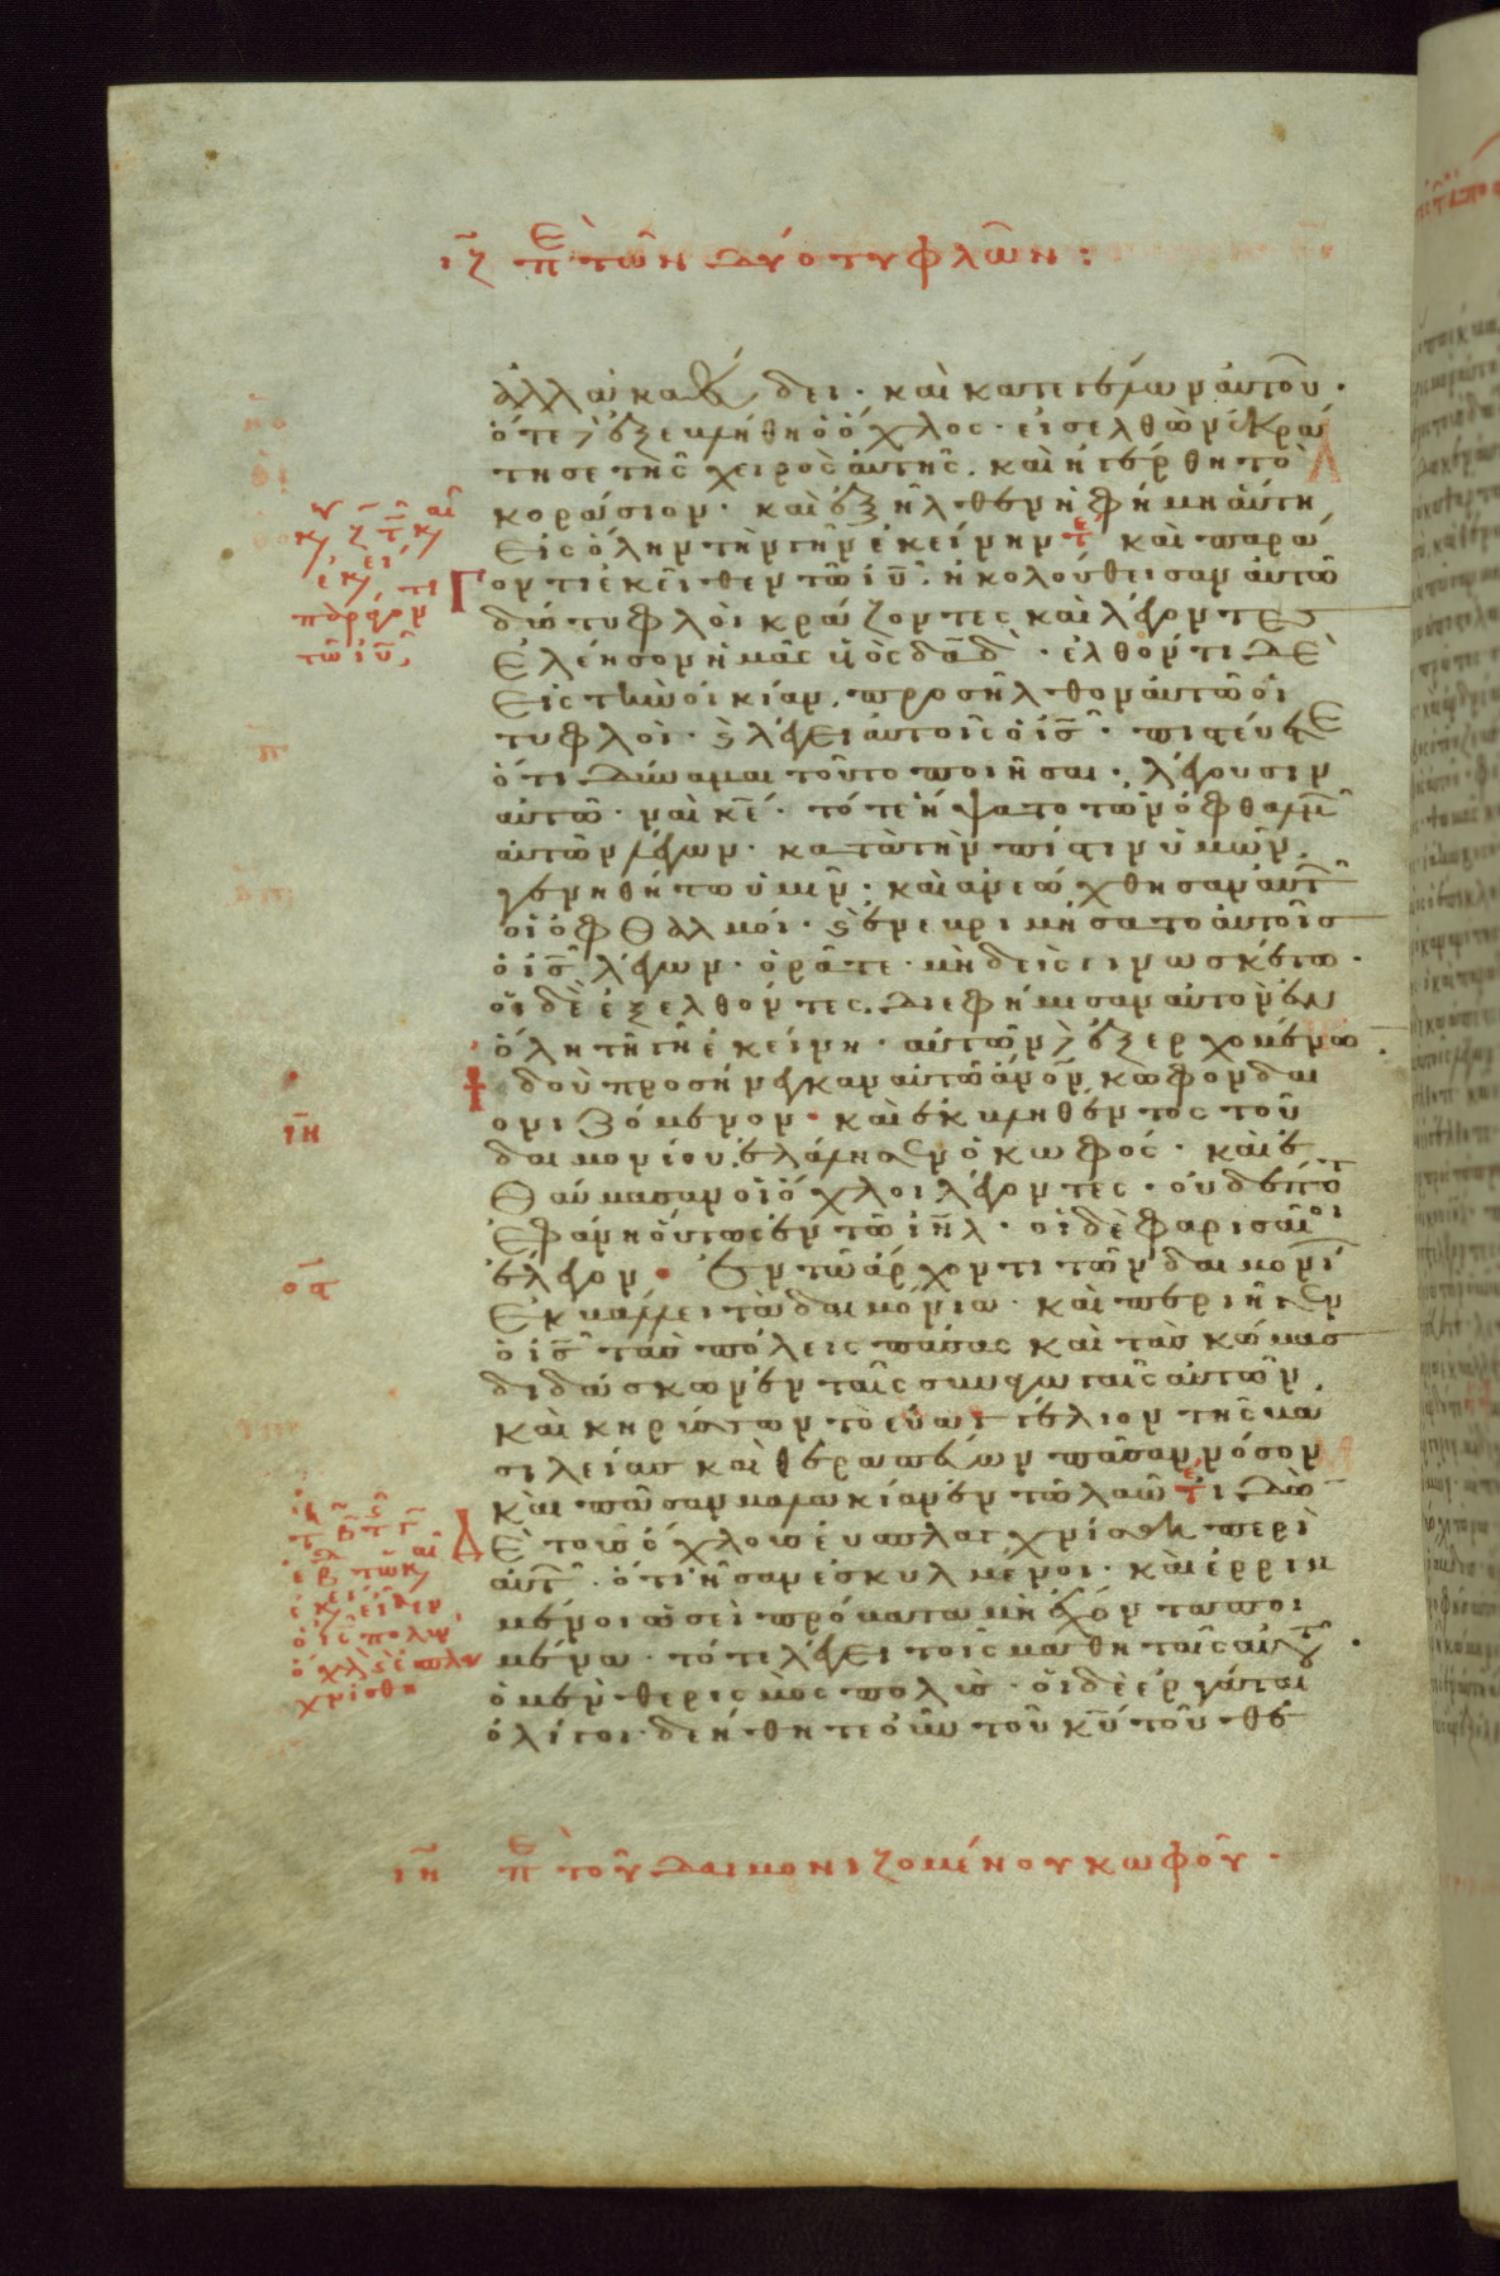 ιζ πε τῶν δύο τυφλῶν:
ἀλλὰ καθεύδει· καὶ κατεγέλων αὐτοῦ·
ὅτε δὲ ἐξεβλήθη ὁ ὄχλος· εἰσελθὼν ἐκρά
τησε τῆς χειρὸς αὐτῆς. καὶ ἠγέρθη τὸ
κοράσιον· καὶ ἐξῆλθεν ἡ φήμη αὕτη
εἰς ὅλην τὴν γῆν ἐκείνην τε καὶ παρά
γοντι ἐκεῖθεν τῶ ιυ. ἠκολούθεισαν αὐτῶ
δύο τυφλοὶ κράζοντες καὶ λέγοντες
ἐλέησον ἡμᾶς υἱὸς δαδ· ἐλθόντι δὲ
εἰς τὴν οἰκίαν, προσῆλθον αὐτῶ οἱ
τυφλοὶ· ϛ λέγει αὐτοῖς ὁ ις· πιστεύετε
ὅτι δύναμαι τοῦτο ποιῆσαι· λέγουσιν
αὐτῶ· ναὶ κε· τότε ἥψατο τῶν ὀφθαλμ
αὐτῶν λέγων· κατὰ τὴν πίστιν ὑμῶν,
γενηθήτω ὑμῖν· καὶ ἀνεώχθησαν αὐτ
οἱ ὀφθαλμοί· ϛ ἐνεβριμήσατο αὐτοῖς
ὁ ις λέγων· ὁρᾶτε· μηδεὶς γινωσκέτω·
οἱ δὲ ἐξελθόντες. διεφήμισαν αὐτὸν ἐν
ὅλη τῆ γῆ ἐκείνη· αὐτῶν δὲ ἐξερχομένω
ἰδοὺ προσήνεγκαν αὐτῶ ἀνον κωφὸν δαι
ιη
μονιζόμενον· καὶ ἐκβληθέντος τοῦ
δαιμονίου. ἐλάλησεν ὁ κωφός· καὶ ἐ
θαύμασαν οἱ ὄχλοι λέγοντες· οὐδέποτ
ἐφάνη οὕτως ἐν τῶ ιηλ· οἱ δὲ φαρισαῖοι
οα
ἔλεγον· ἐν τῶ ἄρχοντι τῶν δαιμονί
ἐκβάλλει τὰ δαιμόνια· καὶ περιῆγεν
ὁ ις τὰς πόλεις πάσας καὶ τὰς κώμας
διδάσκων ἐν ταῖς συναγωγαῖς αὐτῶν,
καὶ κηρύσσων τὸ εὐαγγέλιον τῆς βα
σιλείας καὶ θεραπεύων πᾶσαν νόσον
καὶ πᾶσαν μαλακίαν ἐν τῶ λαῶ τε ἰδὼ
δὲ τοὺς ὄχλους ἐσπλαγχνίσθη περὶ
αὐτ· ὅτι ἦσαν ἐσκυλμένοι· καὶ ἐρριμ
μένοι ὡσεὶ πρόβατα μὴ ἔχοντα ποι
μένα· τότε λέγει τοῖς μαθηταῖς αὐτοῦ·
ὁ μὲν θερισμὸς πολύς· οἱ δὲ ἐργάται
ὀλίγοι· δεήθητε οὖν τοῦ κυ τοῦ θε
ιη πε τοῦ δαιμονιζομένου κωφοῦ·